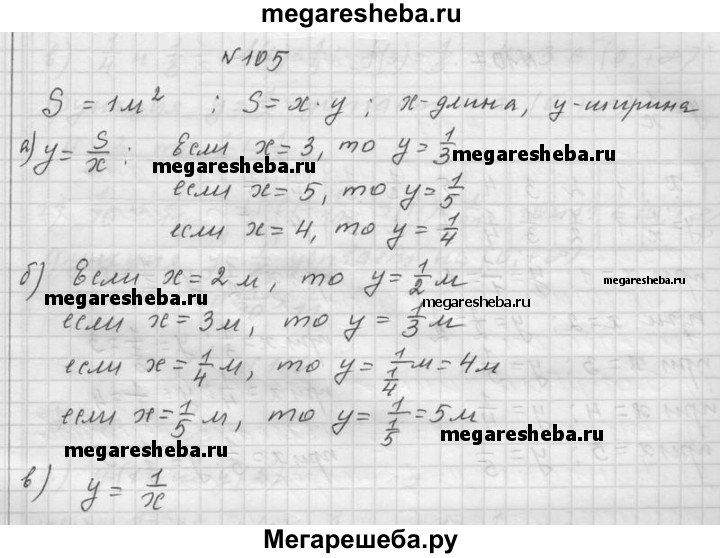 megaresheba.ru
№105
S = 1 м² ; S = x · y ; x-длина, y-ширина
а) y = S/x ; Если x = 3, то y = 1/3
megaresheba.ru megaresheba.ru
если x = 5, то y = 1/5
если x = 4, то y = 1/4
б) Если x = 2 м, то y = 1/2 м
megaresheba.ru
megaresheba.ru megaresheba.ru
если x = 3 м, то y = 1/3 м
если x = 1/4 м, то y = 1/(1/4) м = 4 м
если x = 1/5 м, то y = 1/(1/5) = 5 м
megaresheba.ru
megaresheba.ru
в) y = 1/x
Мегарешеба.ру